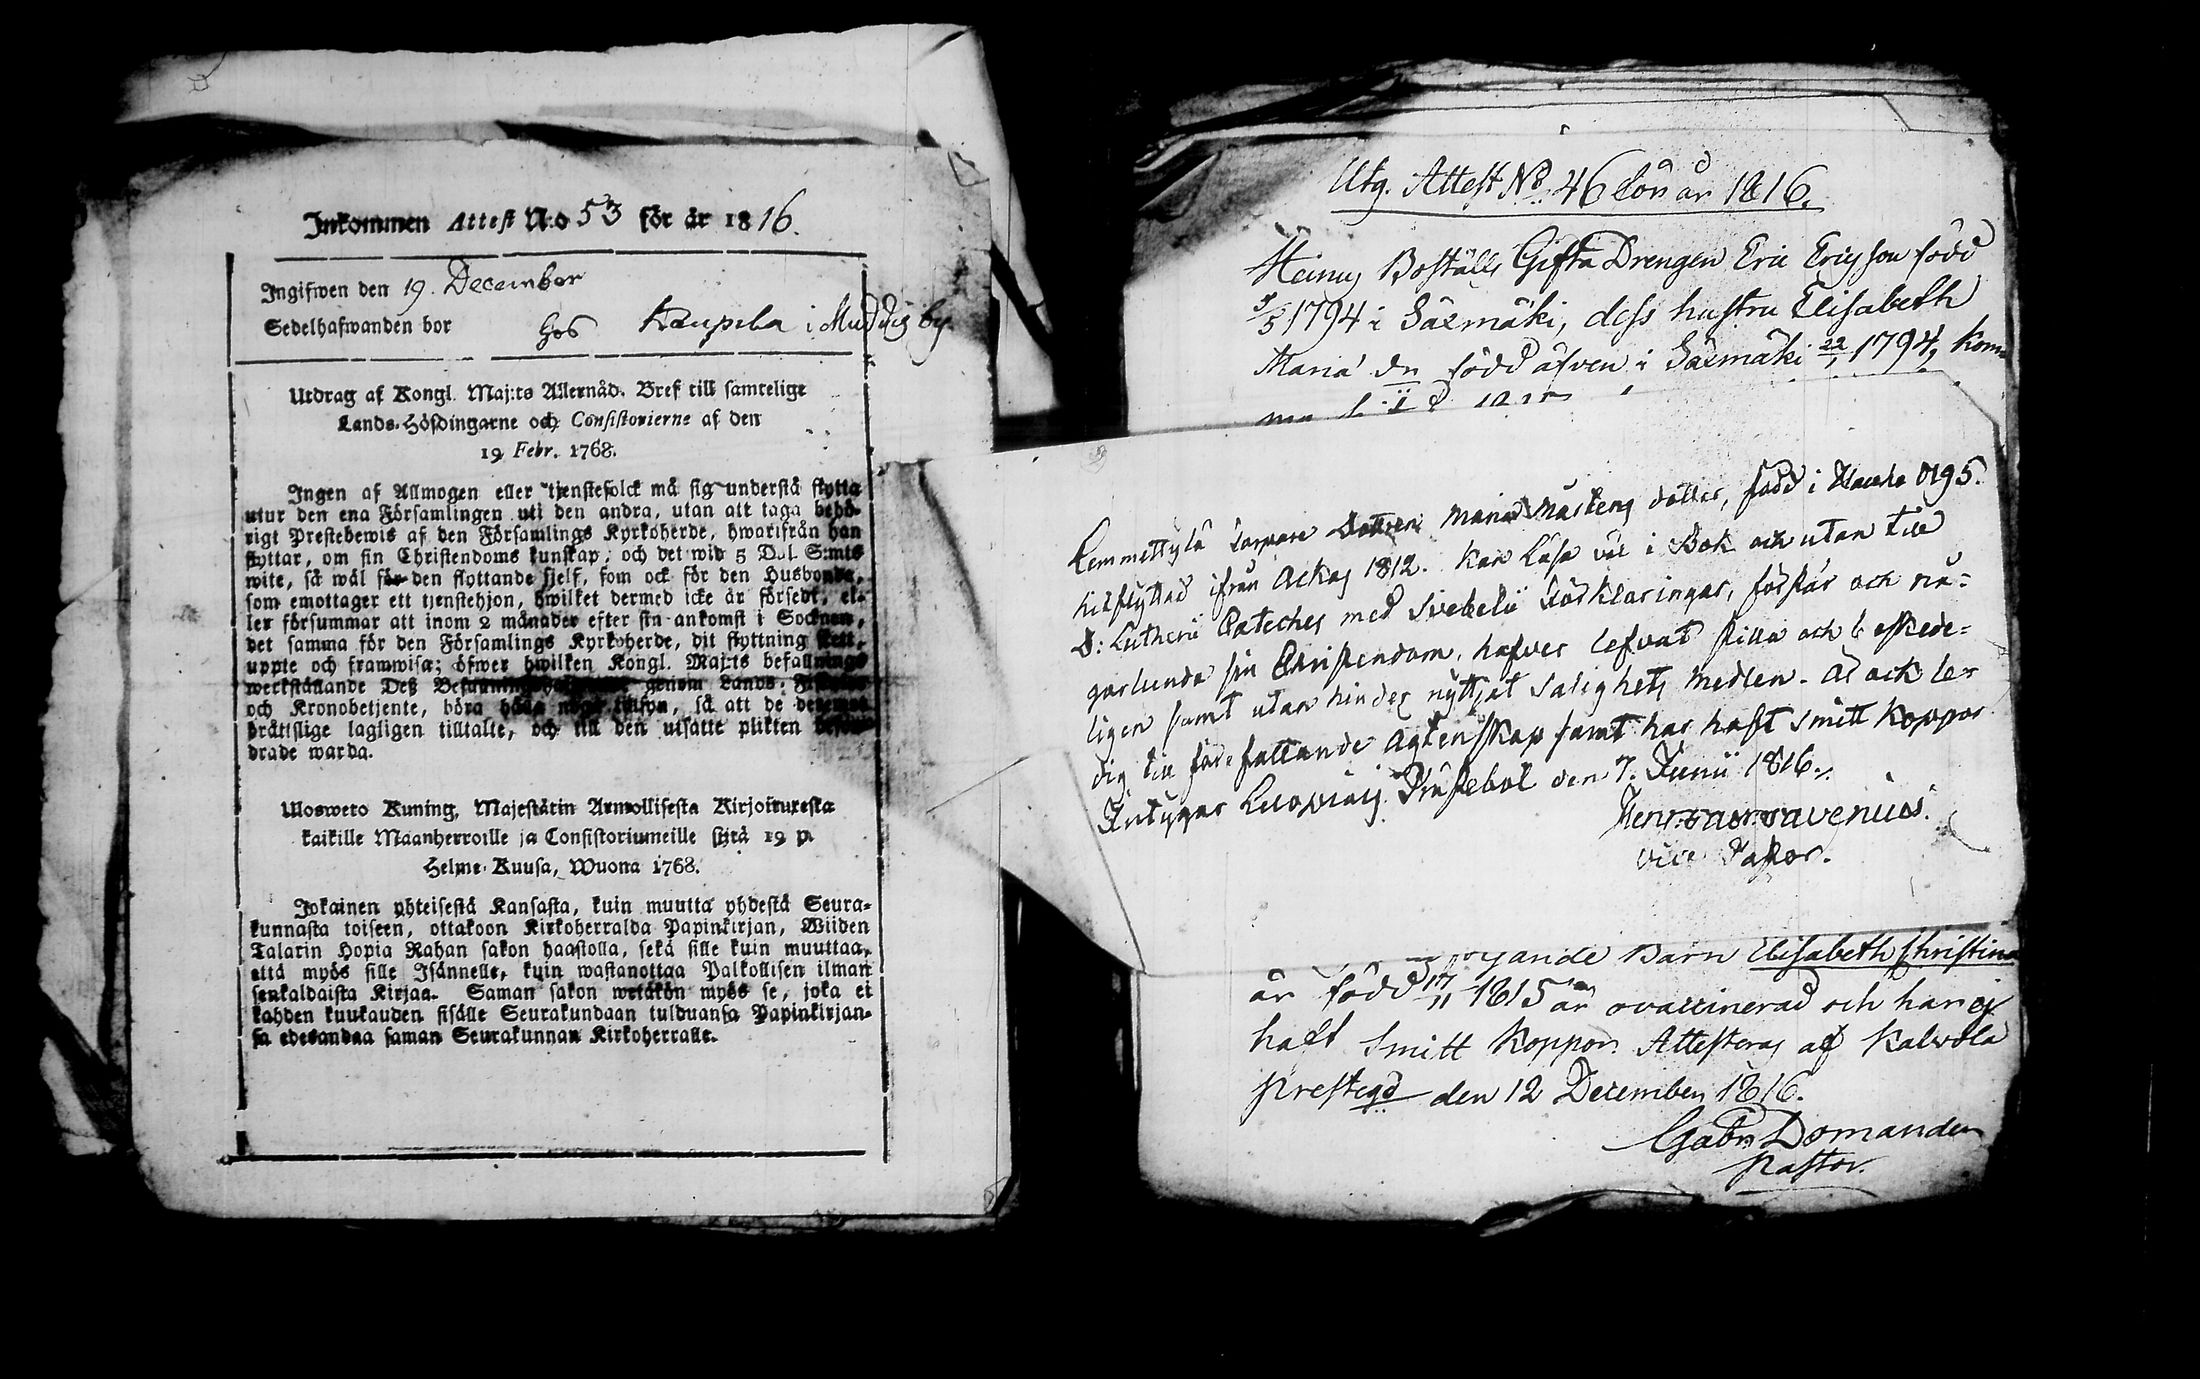 Inkommen Attest N:o 53 för år 1816.
Ingifwen den 19. December
Sedelhafwanden bor hos Kaupila i by.
Utdrag af Kongl. Maj:ts Allernåd. Bref till samtelige
Lands-Höfdingarne och Consistorierne af den
19 Febr. 1768.
Ingen af Allmogen eller tjenstefolck må sig understå flytta
utur den ena Församlingen uti den andra, utan att taga behö-
rigt Prestebewis af den Församlings Kyrkoherde, hwarifrån han
flyttar, om sin Christendoms kunskap; och det wid 5 Dal. S:mts
wite, så wäl för den flyttande sjelf, som ock för den Husbonde,
som emottager ett tjenstehjon, hwilket dermed icke är försedt, el-
ler försummar att inom 2 månader efter sin ankomst i Socknen,
det samma för den Församlings Kyrkoherde, dit flyttning skett,
uppte och framwisa; öfwer hwilken Kongl. Maj:ts befallnings
werkställande Deß genom Lands-
och Kronobetjente, böra hålla noga tillsyn, så att de deremot
brättslige lagligen tilltalte, och till den utsatte plikten befor-
drade warda.
Ulosweto Kuning. Majestätin Armollisesta Kirjoituxesta
kaikille Maanherroille ja Consistoriumeille siitä 19 p.
Helme-Kuusa, Wuona 1768.
Jokainen yhteisestä Kansasta, kuin muutta yhdestä Seura-
kunnasta toiseen, ottakoon Kirkoherralda Papinkirjan, Wiiden
Talarin Hopia Rahan sakon haastolla, sekä sille kuin muuttaa,
että myös sille Isännelle, kuin wastanottaa Palkollisen ilman
senkaldaista Kirjaa. Saman sakon wetäkön myös se, joka ei
kahden kuukauden sisälle Seurakundaan tulduansa Papinkirjan-
sa edesandaa saman Seurakunnan Kirkoherralle.
Utg. Attest No. 46 för år 1816.
Heinus Boställs Gifta Drengen Eric Ericsson född
1794 i Säxmäki, dess hustru Elisabeth
Maria dr född äfven i Säxmäki 22/1 1794, kom-
Lemmettylä Torpare Dottren Maria Mårtens dotter, född i 1795.
hitflyttad ifrån Ackas 1812. Kan läsa väl i Bok och utan till
D: Lutherii Cateches med Svebelii Förklaringar, förstår och nå-
gorlunda sin Christendom, hafver lefvat stilla och beskede-
ligen samt utan hinder nyttjat Salighets medlen. Är ock le-
dig till förefallande Ägtenskap samt har haft Smitt Koppor
Intygar Urdiala Prästebol den 7. Junii 1816.
vice Pastor.
Barn Elisabeth Christina
är född 17/11 1815 är ovaccinerad och har ej
haft Smitt Koppor. Attesteras af Kalvola
Prestegd den 12 December 1816.
Gabr. Domander
Pastor.